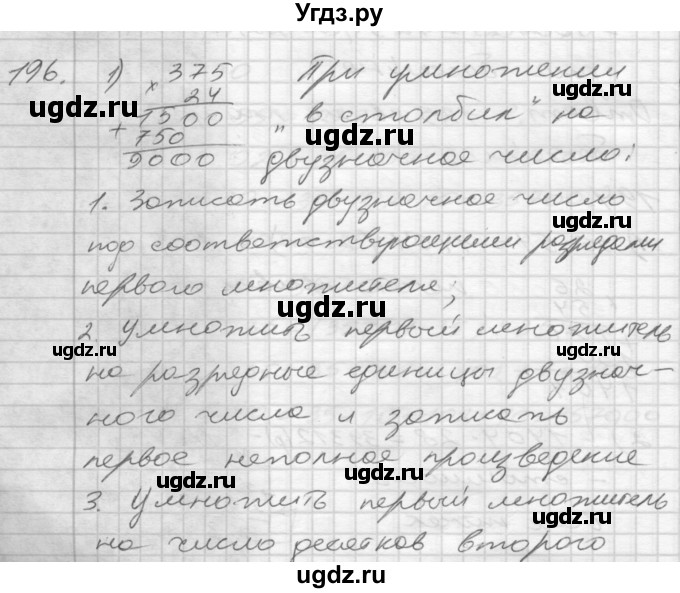 Угдз.ру
196. 1) 375 При умножении
ugdz.ru
× 24
ugdz.ru
1500 „в столбик“ на
+ 750
ugdz.ru
9000 двузначное число:
1. Записать двузначное число
ugdz.ru
под соответствующими разрядами
ugdz.ru
первого множителя;
ugdz.ru
2 Умножить первый множитель
ugdz.ru
ugdz.ru
на разрядные единицы двузнач-
ного числа и записать
первое неполное произведение
ugdz.ru
ugdz.ru
3. Умножить первый множитель
ugdz.ru
на число десятков второго
ugdz.ru